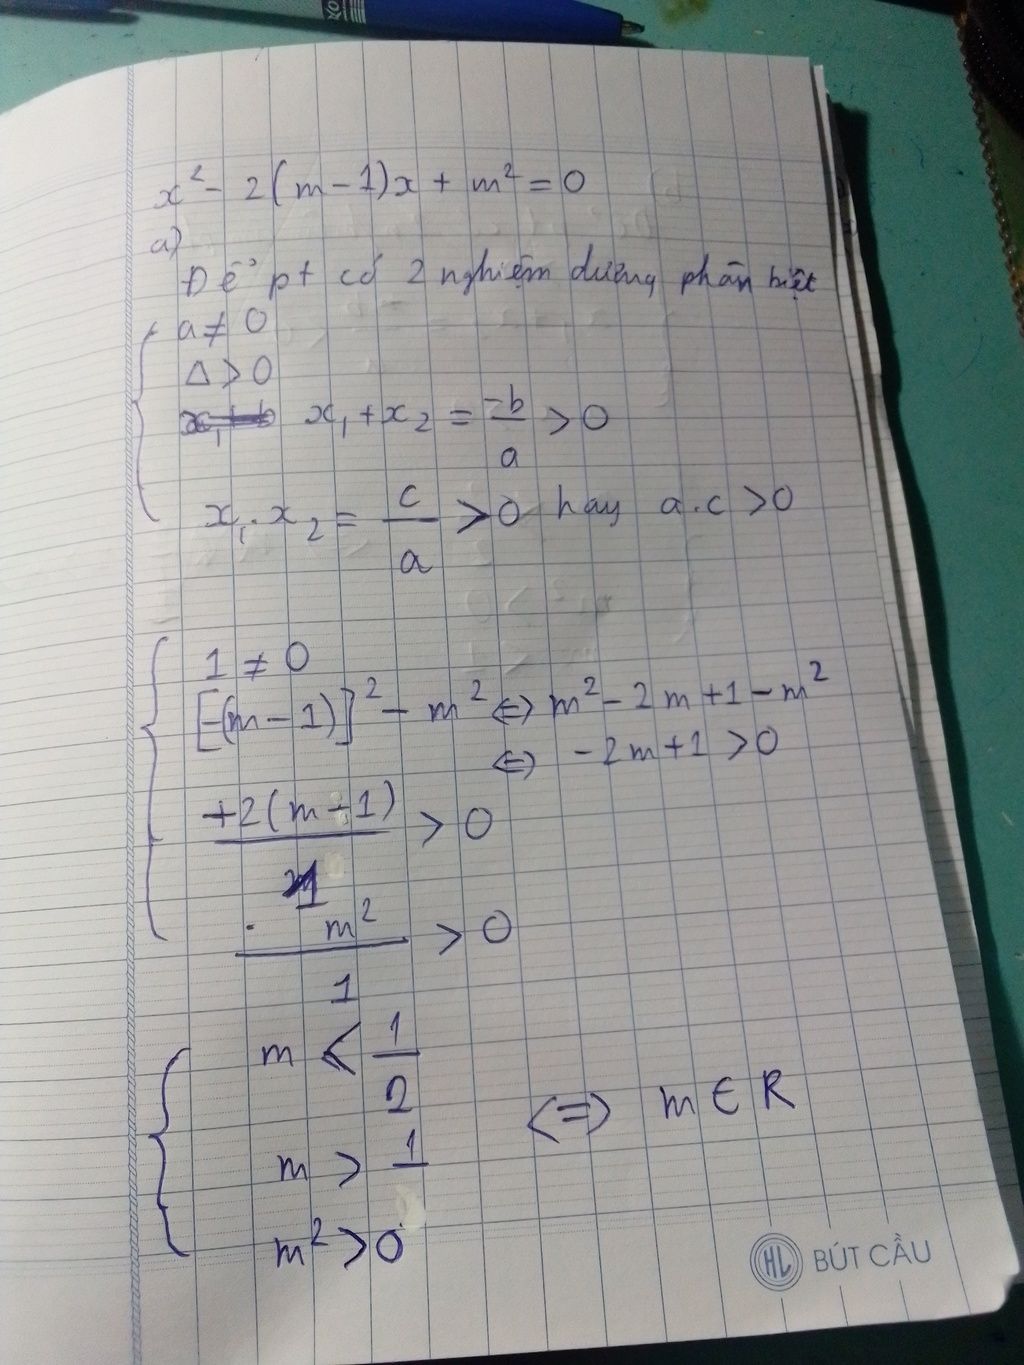 x² - 2(m-1)x + m² = 0
a)
Để pt có 2 nghiệm dương phân biệt
a ≠ 0
Δ > 0
x₁ + x₂ = -b/a > 0
x₁ . x₂ = c/a > 0 hay a.c > 0
1 ≠ 0
[-(m-1)]² - m² ⇔ m² - 2m + 1 - m²
⇔ -2m + 1 > 0
+2(m-1)/1 > 0
m²/1 > 0
m < 1/2
⇔ m ∈ R
m > 1
m² > 0
HL BÚT CẦU